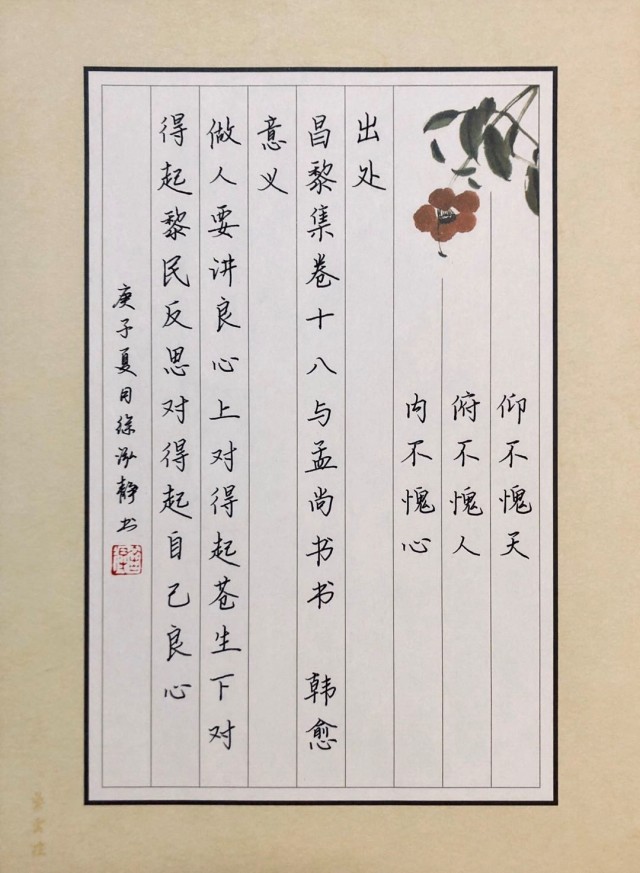 仰不愧天
俯不愧人
内不愧心
出处
昌黎集卷十八与孟尚书书 韩愈
意义
做人要讲良心上对得起苍生下对
得起黎民反思对得起自己良心
庚子夏月徐泓静书